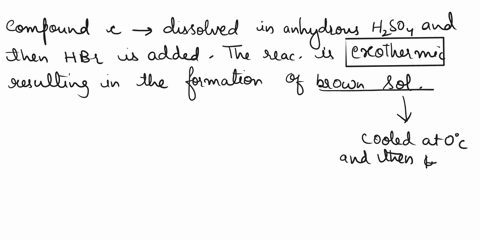 Compound c → dissolved in anhydrous H₂SO₄ and
then HBr is added. The reac. is exothermic
resulting in the formation of brown sol.
cooled at 0°c
and then